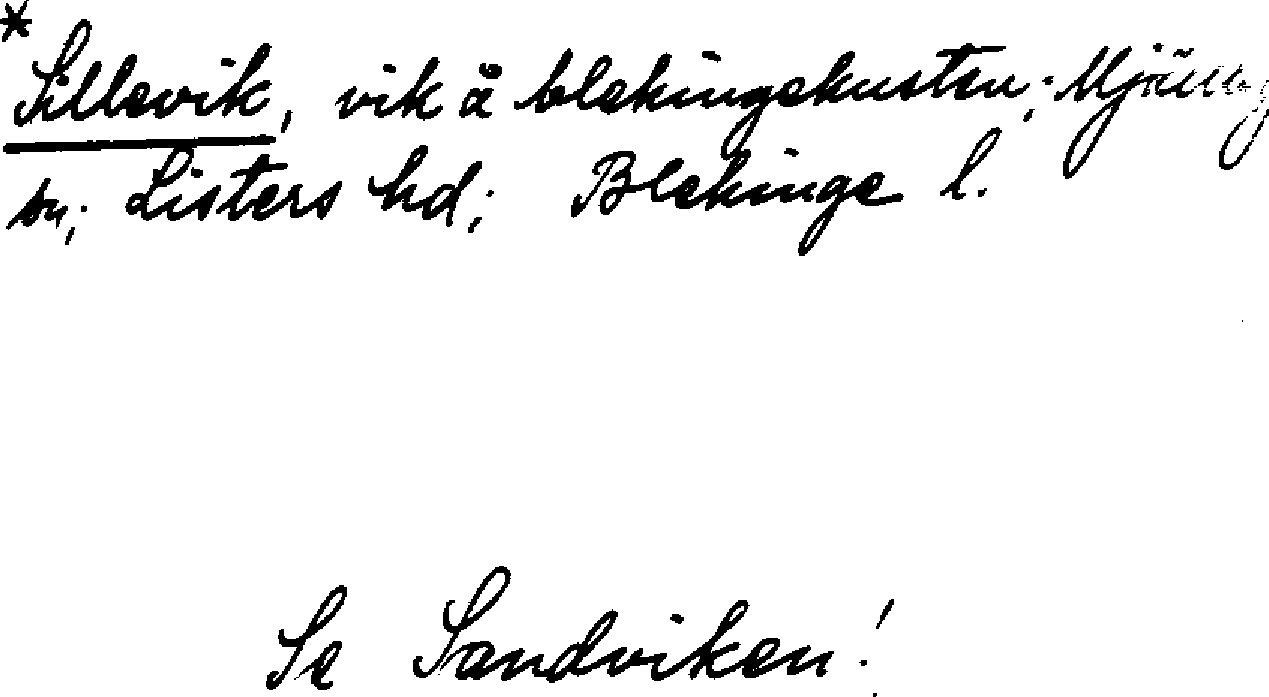 *Sillevik, vik å blekingekusten; Mjälby
sn; Listers hd; Blekinge l.
Se Sandviken!